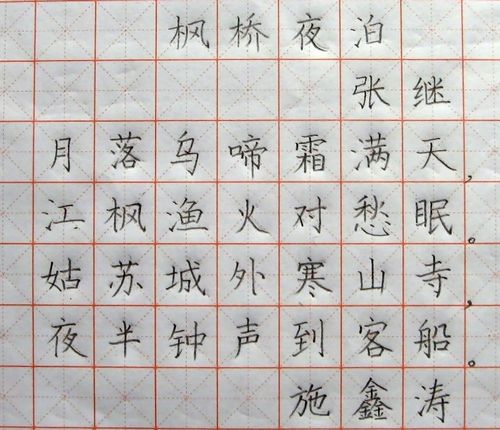 枫桥夜泊
张继
月落乌啼霜满天，
江枫渔火对愁眠。
姑苏城外寒山寺，
夜半钟声到客船。
施鑫涛